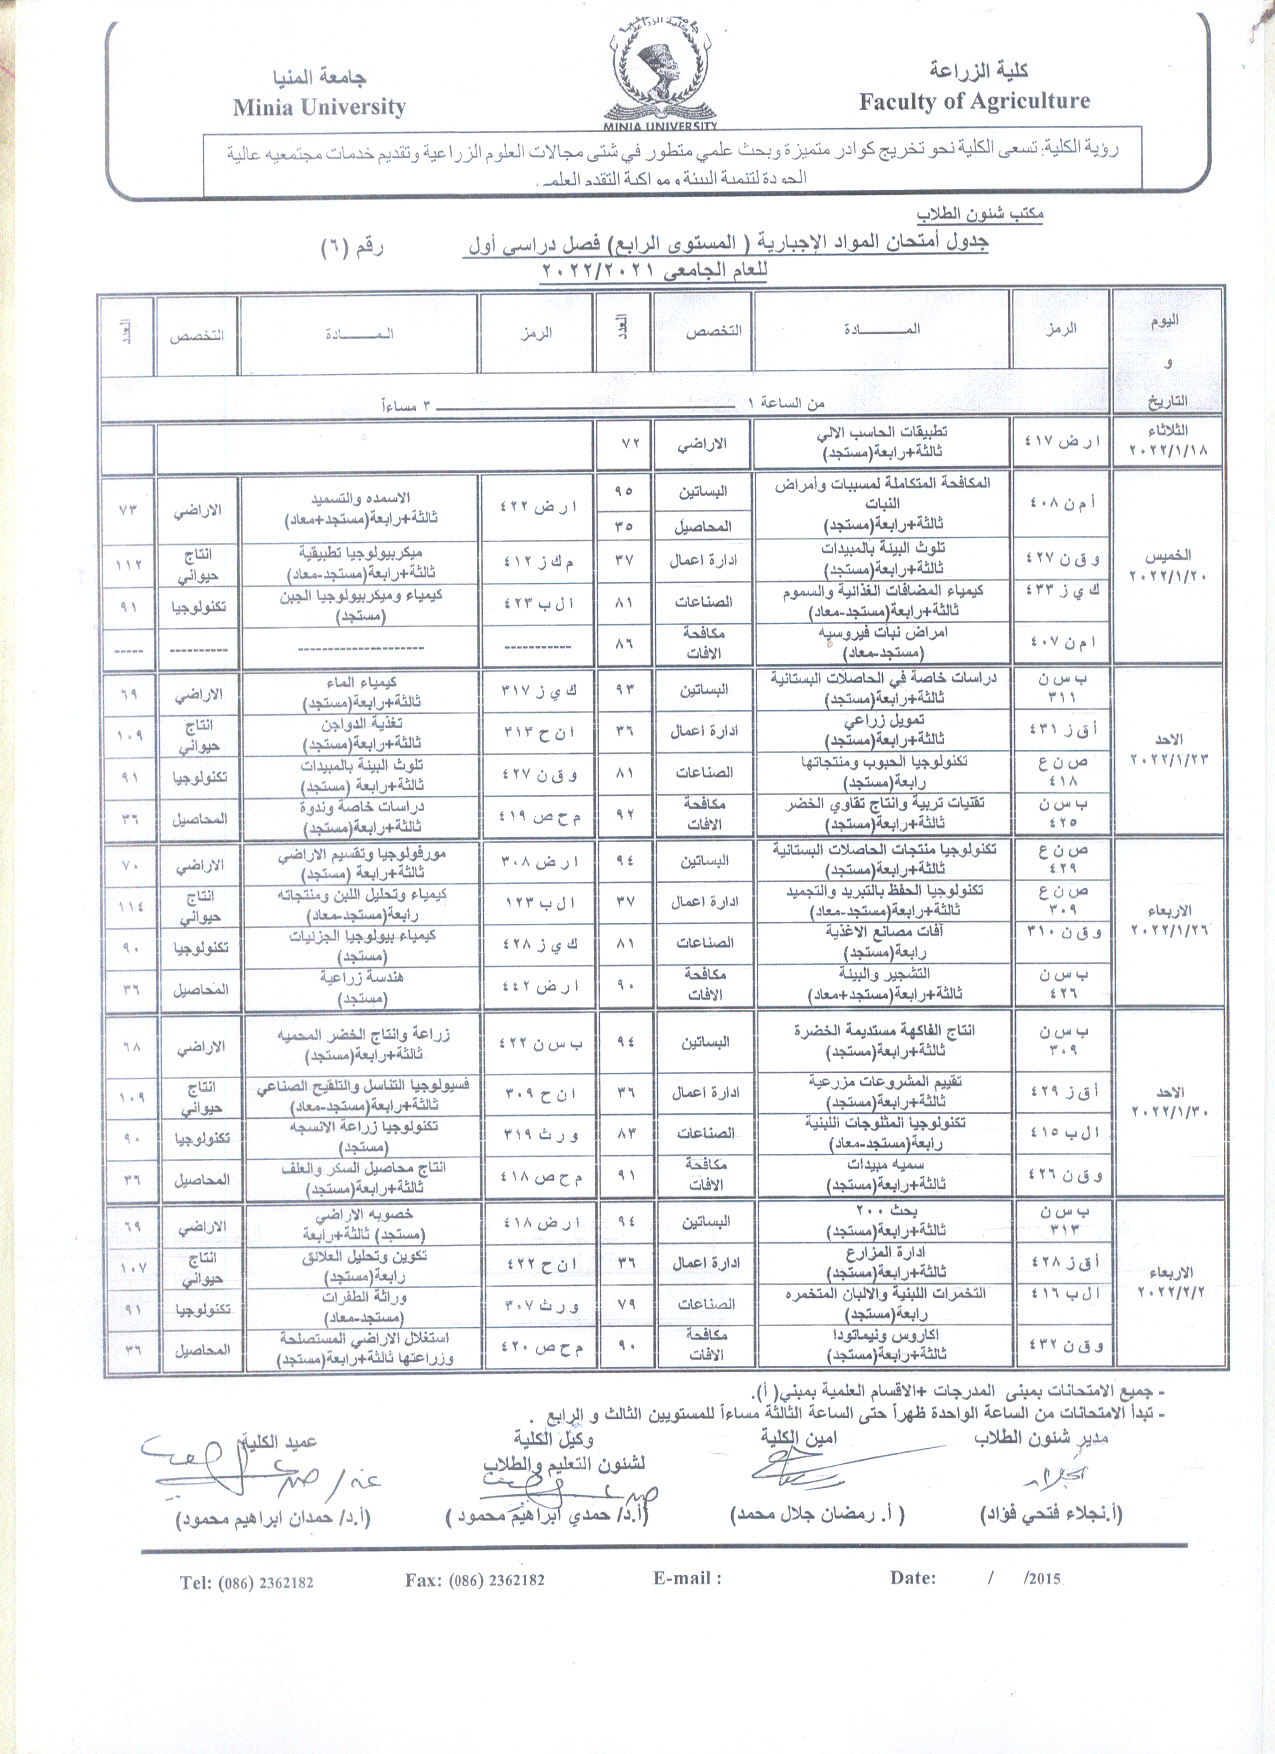 جامعة المنيا
Minia University
كلية الزراعة
Faculty of Agriculture
MINIA UNIVERSITY
رؤية الكلية: تسعى الكلية نحو تخريج كوادر متميزة وبحث علمي متطور في شتى مجالات العلوم الزراعية وتقديم خدمات مجتمعيه عالية
الجودة لتنمية البيئة ومواكبة التقدم العلمي.
مكتب شئون الطلاب
جدول أمتحان المواد الإجبارية ( المستوى الرابع) فصل دراسى أول رقم (٦)
للعام الجامعى ٢٠٢٢/٢٠٢١
اليوم و التاريخ الرمز المـــــادة التخصص العدد الرمز المـــــادة التخصص العدد
من الساعة ١ ــــــــــ ٣ مساءاً
الثلاثاء ٢٠٢٢/١/١٨
ا ر ض ٤١٧ تطبيقات الحاسب الالي ثالثة+رابعة(مستجد) الاراضي ٧٢
الخميس ٢٠٢٢/١/٢٠
أ م ن ٤٠٨ المكافحة المتكاملة لمسببات وأمراض النبات ثالثة+رابعة(مستجد) البساتين ٩٥ المحاصيل ٣٥ ا ر ض ٤٢٢ الاسمده والتسميد ثالثة+رابعة(مستجد+معاد) الاراضي ٧٣
و ق ن ٤٢٧ تلوث البيئة بالمبيدات ثالثة+رابعة(مستجد) ادارة اعمال ٣٧ م ك ز ٤١٢ ميكربيولوجيا تطبيقية ثالثة+رابعة(مستجد-معاد) انتاج حيواني ١١٢
ك ي ز ٤٣٣ كيمياء المضافات الغذائية والسموم ثالثة+رابعة(مستجد-معاد) الصناعات ٨١ ال ب ٤٢٣ كيمياء وميكربيولوجيا الجبن (مستجد) تكنولوجيا ٩١
ام ن ٤٠٧ امراض نبات فيروسيه (مستجد-معاد) مكافحة الافات ٨٦ ----------- -------------------- ---------- -----
الاحد ٢٠٢٢/١/٢٣
ب س ن ٣١١ دراسات خاصة في الحاصلات البستانية ثالثة+رابعة(مستجد) البساتين ٩٣ ك ي ز ٣١٧ كيمياء الماء ثالثة+رابعة(مستجد) الاراضي ٦٩
أ ق ز ٤٣١ تمويل زراعي ثالثة+رابعة(مستجد) ادارة اعمال ٣٦ ان ح ٣١٣ تغذية الدواجن ثالثة+رابعة(مستجد) انتاج حيواني ١٠٩
ص ن ع ٤١٨ تكنولوجيا الحبوب ومنتجاتها رابعة(مستجد) الصناعات ٨١ و ق ن ٤٢٧ تلوث البيئة بالمبيدات ثالثة+رابعة (مستجد) تكنولوجيا ٩١
ب س ن ٤٢٥ تقنيات تربية وانتاج تقاوي الخضر ثالثة+رابعة(مستجد) مكافحة الافات ٩٢ م ح ص ٤١٩ دراسات خاصة وندوة ثالثة+رابعة(مستجد) المحاصيل ٣٦
الاربعاء ٢٠٢٢/١/٢٦
ص ن ع ٤٢٩ تكنولوجيا منتجات الحاصلات البستانية ثالثة+رابعة(مستجد) البساتين ٩٤ ا ر ض ٣٠٨ مورفولوجيا وتقسيم الاراضي ثالثة+رابعة (مستجد) الاراضي ٧٠
ص ن ع ٣٠٩ تكنولوجيا الحفظ بالتبريد والتجميد ثالثة+رابعة(مستجد-معاد) ادارة اعمال ٣٧ ال ب ١٢٣ كيمياء وتحليل اللبن ومنتجاته رابعة(مستجد-معاد) انتاج حيواني ١١٤
و ق ن ٣١٠ آفات مصانع الاغذية رابعة(مستجد) الصناعات ٨١ ك ي ز ٤٢٨ كيمياء بيولوجيا الجزئيات (مستجد) تكنولوجيا ٩٠
ب س ن ٤٢٦ التشجير والبيئة ثالثة+رابعة(مستجد+معاد) مكافحة الافات ٩٠ ا ر ض ٤٤٢ هندسة زراعية (مستجد) المحاصيل ٣٦
الاحد ٢٠٢٢/١/٣٠
ب س ن ٣٠٩ انتاج الفاكهة مستديمة الخضرة ثالثة+رابعة(مستجد) البساتين ٩٤ ب س ن ٤٢٢ زراعة وانتاج الخضر المحميه ثالثة+رابعة(مستجد) الاراضي ٦٨
أ ق ز ٤٢٩ تقييم المشروعات مزرعية ثالثة+رابعة(مستجد) ادارة اعمال ٣٦ ان ح ٣٠٩ فسيولوجيا التناسل والتلقيح الصناعي ثالثة+رابعة(مستجد-معاد) انتاج حيواني ١٠٩
ال ب ٤١٥ تكنولوجيا المثلوجات اللبنية رابعة(مستجد-معاد) الصناعات ٨٣ و ر ث ٣١٩ تكنولوجيا زراعة الانسجه (مستجد) تكنولوجيا ٩٠
و ق ن ٤٢٦ سميه مبيدات ثالثة+رابعة(مستجد) مكافحة الافات ٩١ م ح ص ٤١٨ انتاج محاصيل السكر والعلف ثالثة+رابعة(مستجد) المحاصيل ٣٦
الاربعاء ٢٠٢٢/٢/٢
ب س ن ٣١٣ بحث ٢٠٠ ثالثة+رابعة(مستجد) البساتين ٩٤ ا ر ض ٤١٨ خصوبه الاراضي (مستجد) ثالثة+رابعة الاراضي ٦٩
أ ق ز ٤٢٨ ادارة المزارع ثالثة+رابعة(مستجد) ادارة اعمال ٣٦ ان ح ٤٢٢ تكوين وتحليل العلائق رابعة(مستجد) انتاج حيواني ١٠٧
ال ب ٤١٦ التخمرات اللبنية والالبان المتخمره رابعة(مستجد) الصناعات ٧٩ و ر ث ٣٠٧ وراثة الطفرات (مستجد-معاد) تكنولوجيا ٩١
و ق ن ٤٣٢ اكاروس ونيماتودا ثالثة+رابعة(مستجد) مكافحة الافات ٩٠ م ح ص ٤٢٠ استغلال الاراضي المستصلحة وزراعتها ثالثة+رابعة(مستجد) المحاصيل ٣٦
- جميع الامتحانات بمبنى المدرجات +الاقسام العلمية بمبني( أ).
- تبدأ الامتحانات من الساعة الواحدة ظهراً حتى الساعة الثالثة مساءاً للمستويين الثالث و الرابع .
مدير شئون الطلاب امين الكلية وكيل الكلية عميد الكلية
لشئون التعليم والطلاب
(أ.نجلاء فتحي فؤاد) ( أ. رمضان جلال محمد) (أ.د/ حمدي ابراهيم محمود ) (أ.د/ حمدان ابراهيم محمود)
Tel: (086) 2362182 Fax: (086) 2362182 E-mail : Date: / /2015